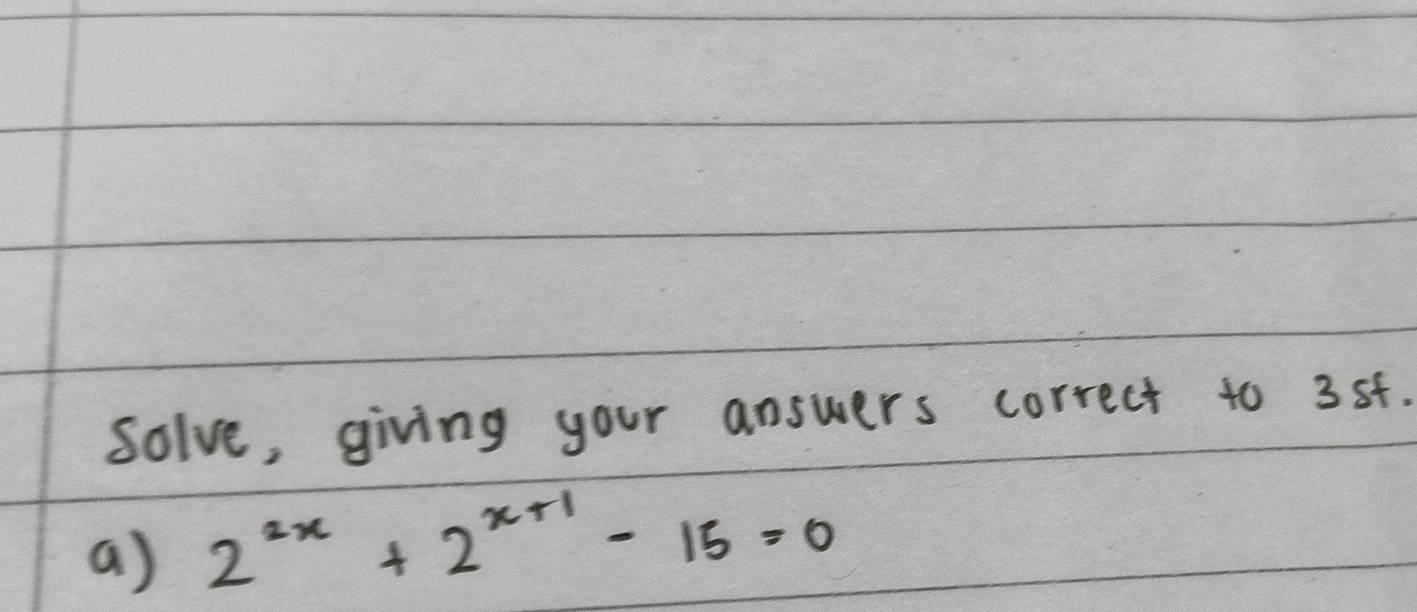 Solve, giving your answers correct to 3 sf.
a) 2^{2x} + 2^{x+1} - 15 = 0